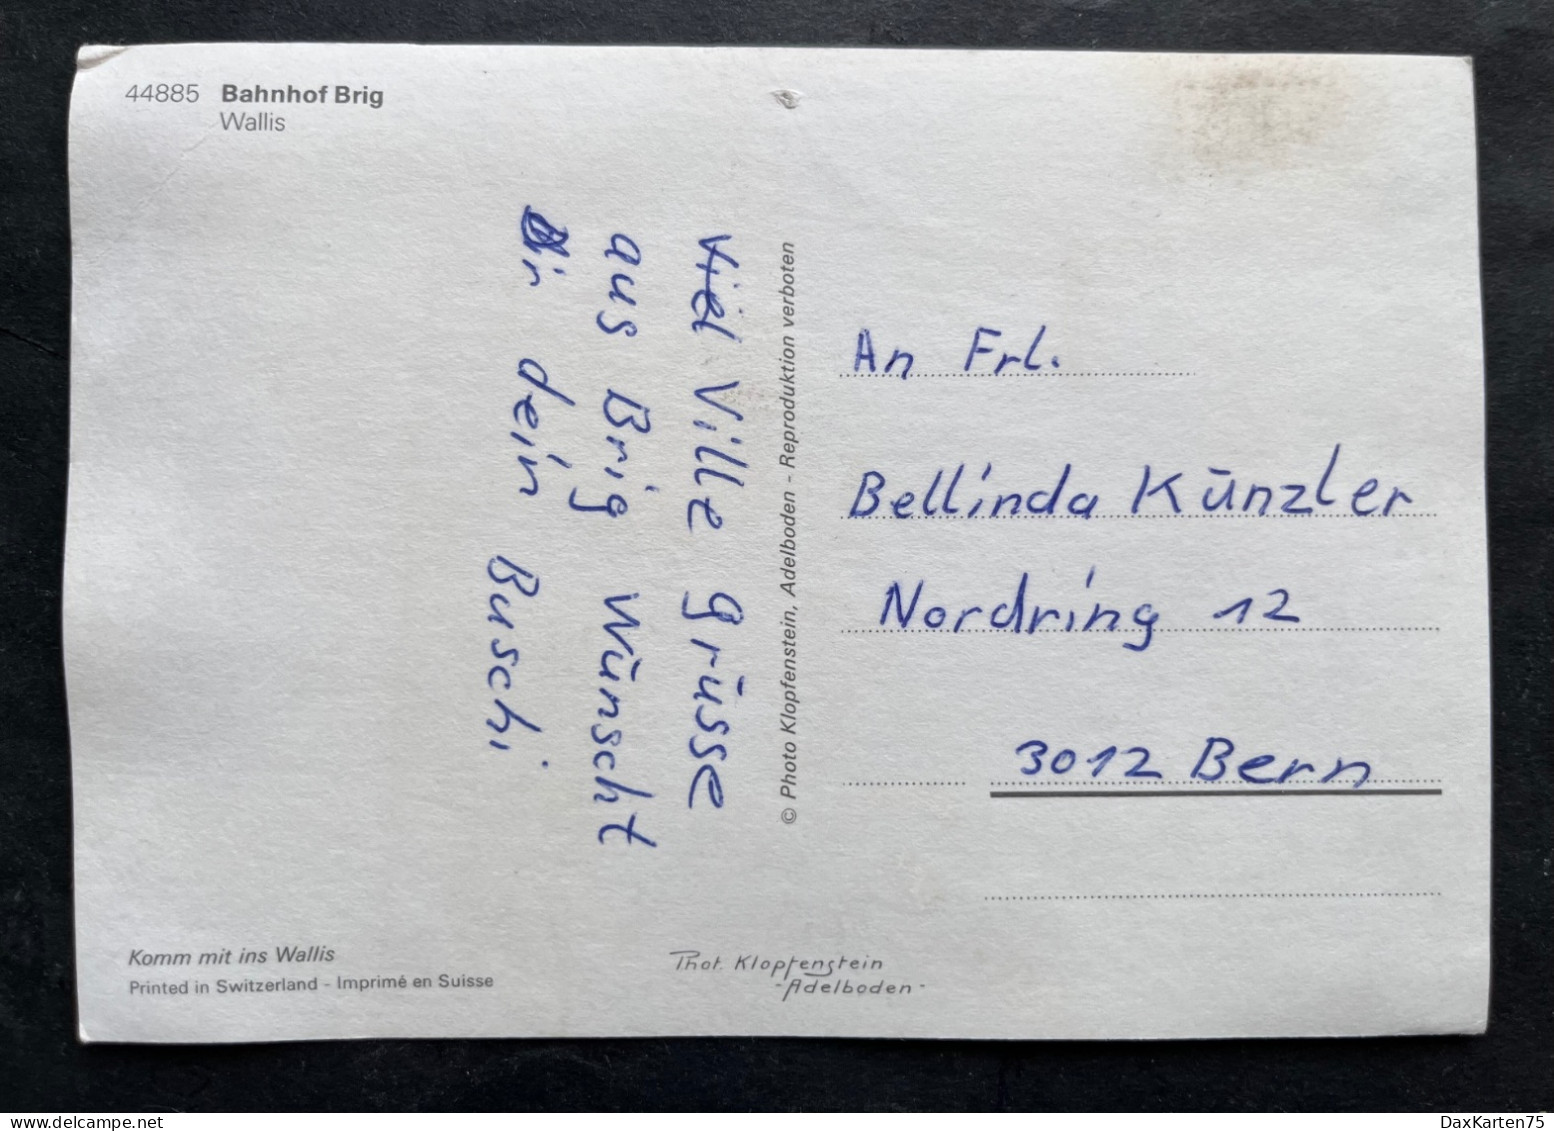 44885 Bahnhof Brig
Wallis
Viel Ville grüsse
aus Brig wünscht
dir dein Buschi
© Photo Klopfenstein, Adelboden - Reproduktion verboten
An Frl.
Bellinda Künzler
Nordring 12
3012 Bern
Komm mit ins Wallis
Printed in Switzerland - Imprimé en Suisse
Phot. Klopfenstein
- Adelboden -
delcampe.net
DaxKarten75